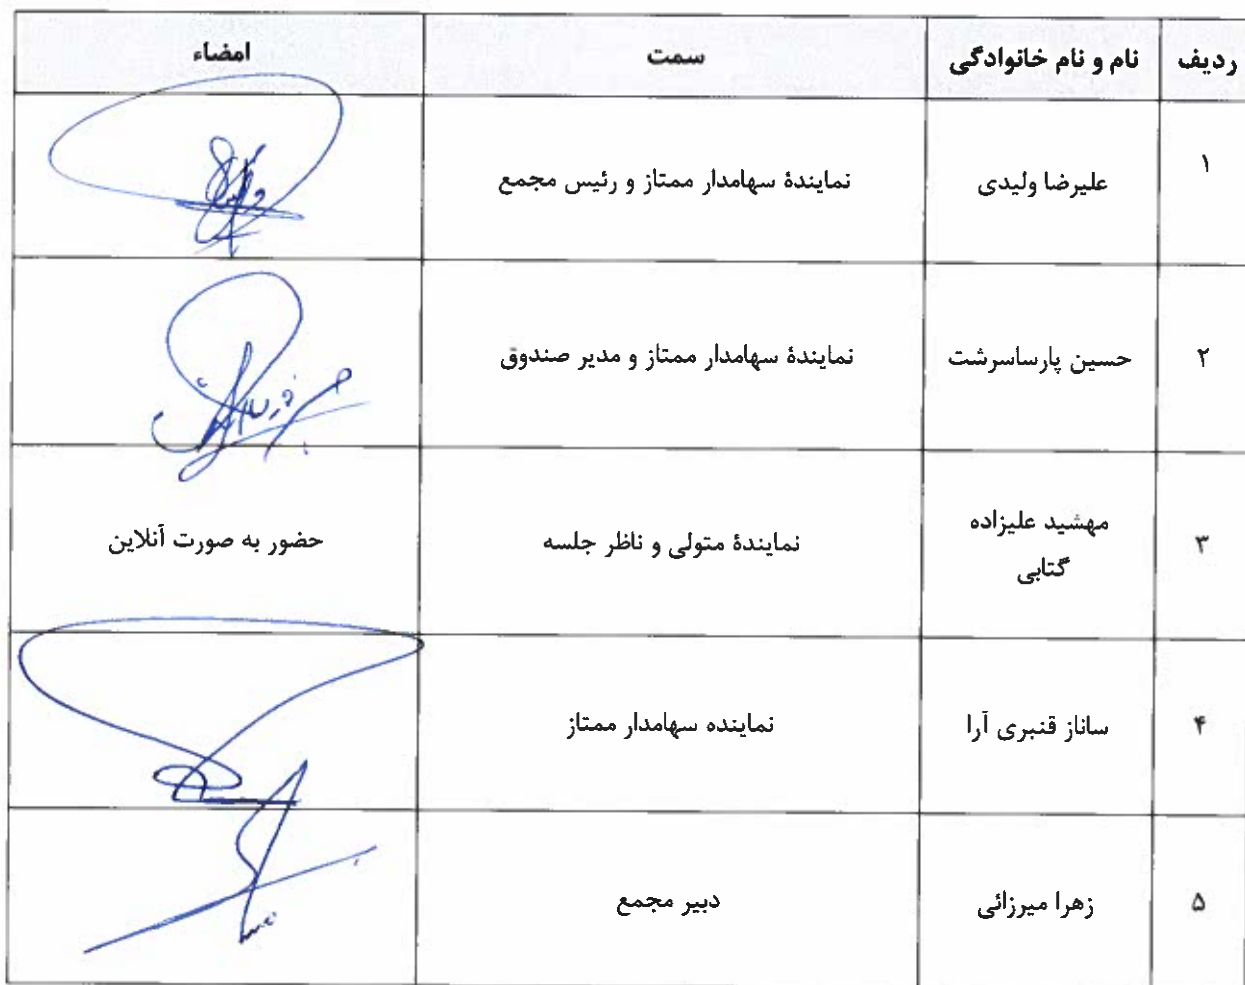 ردیف نام و نام خانوادگی سمت امضاء
۱ علیرضا ولیدی نمایندهٔ سهامدار ممتاز و رئیس مجمع
۲ حسین پارساسرشت نمایندهٔ سهامدار ممتاز و مدیر صندوق
۳ مهشید علیزاده گتابی نمایندهٔ متولی و ناظر جلسه حضور به صورت آنلاین
۴ ساناز قنبری آرا نماینده سهامدار ممتاز
۵ زهرا میرزائی دبیر مجمع